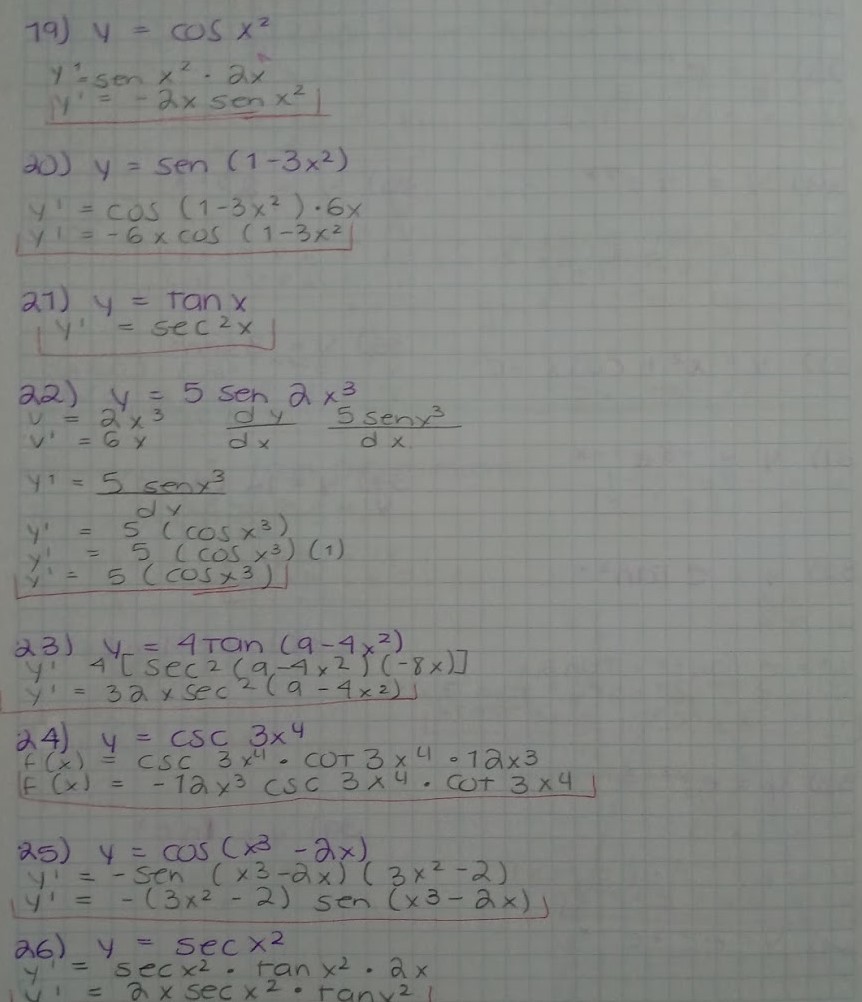 19) y = cos x²
y' = sen x² · 2x
y' = - 2x sen x²
20) y = sen (1-3x²)
y' = cos (1-3x²) · 6x
y' = -6x cos (1-3x²
21) y = Tan x
y' = sec²x
22) y = 5 sen 2x³
v = 2x³ dy/dx 5 senx³/dx
v' = 6x
y' = 5 senx³/dy
y' = 5 (cos x³)
y' = 5 (cos x³) (1)
y' = 5 (cosx³)
23) y = 4Tan (9-4x²)
y' 4 [sec² (9-4x²) (-8x)]
y' = 32xsec² (9-4x²)
24) y = csc 3x⁴
f(x) = csc 3x⁴ · cot 3x⁴ · 12x3
F(x) = -12x³ csc 3x4 · cot 3x4
25) y = cos (x³ - 2x)
y' = -sen (x3-2x) (3x²-2)
y' = -(3x² - 2) sen (x3 - 2x)
26) y = sec x²
y' = sec x² · tan x² · 2x
y' = 2x sec x² · tanx²